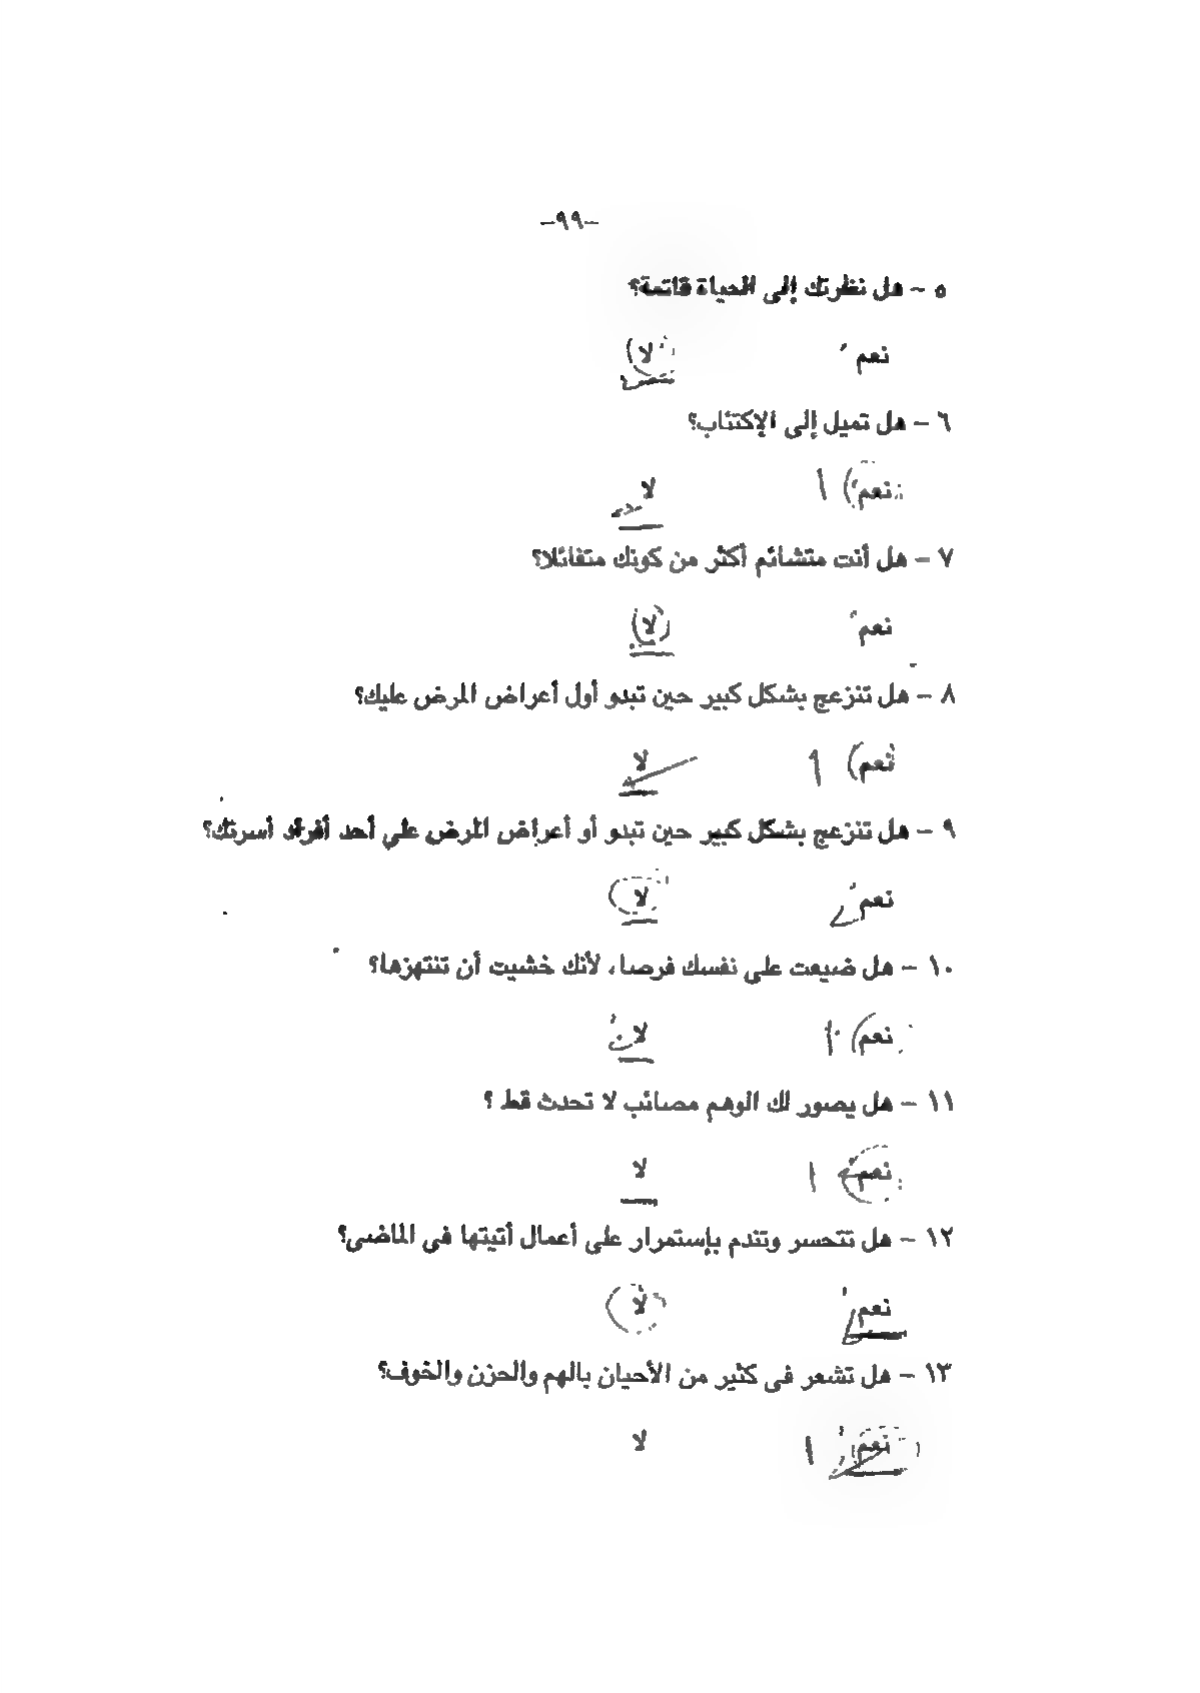 -٩٩-
٥ - هل نظرتك إلى الحياة قاتمة؟
نعم لا
٦ - هل تميل إلى الإكتئاب؟
نعم ا لا
٧ - هل أنت متشائم أكثر من كونك متفائلا؟
نعم لا
٨ - هل تنزعج بشكل كبير حين تبدو أول أعراض المرض عليك؟
نعم ا لا
٩ - هل تنزعج بشكل كبير حين تبدو أو أعراض المرض علي أحد أفراد أسرتك؟
نعم لا
١٠ - هل ضيعت على نفسك فرصا، لأنك خشيت أن تنتهزها؟
نعم ا لا
١١ - هل يصور لك الوهم مصائب لا تحدث قط ؟
نعم ا لا
١٢ - هل تتحسر وتندم بإستمرار على أعمال أتيتها في الماضى؟
نعم لا
١٣ - هل تشعر فى كثير من الأحيان بالهم والحزن والخوف؟
نعم ا لا